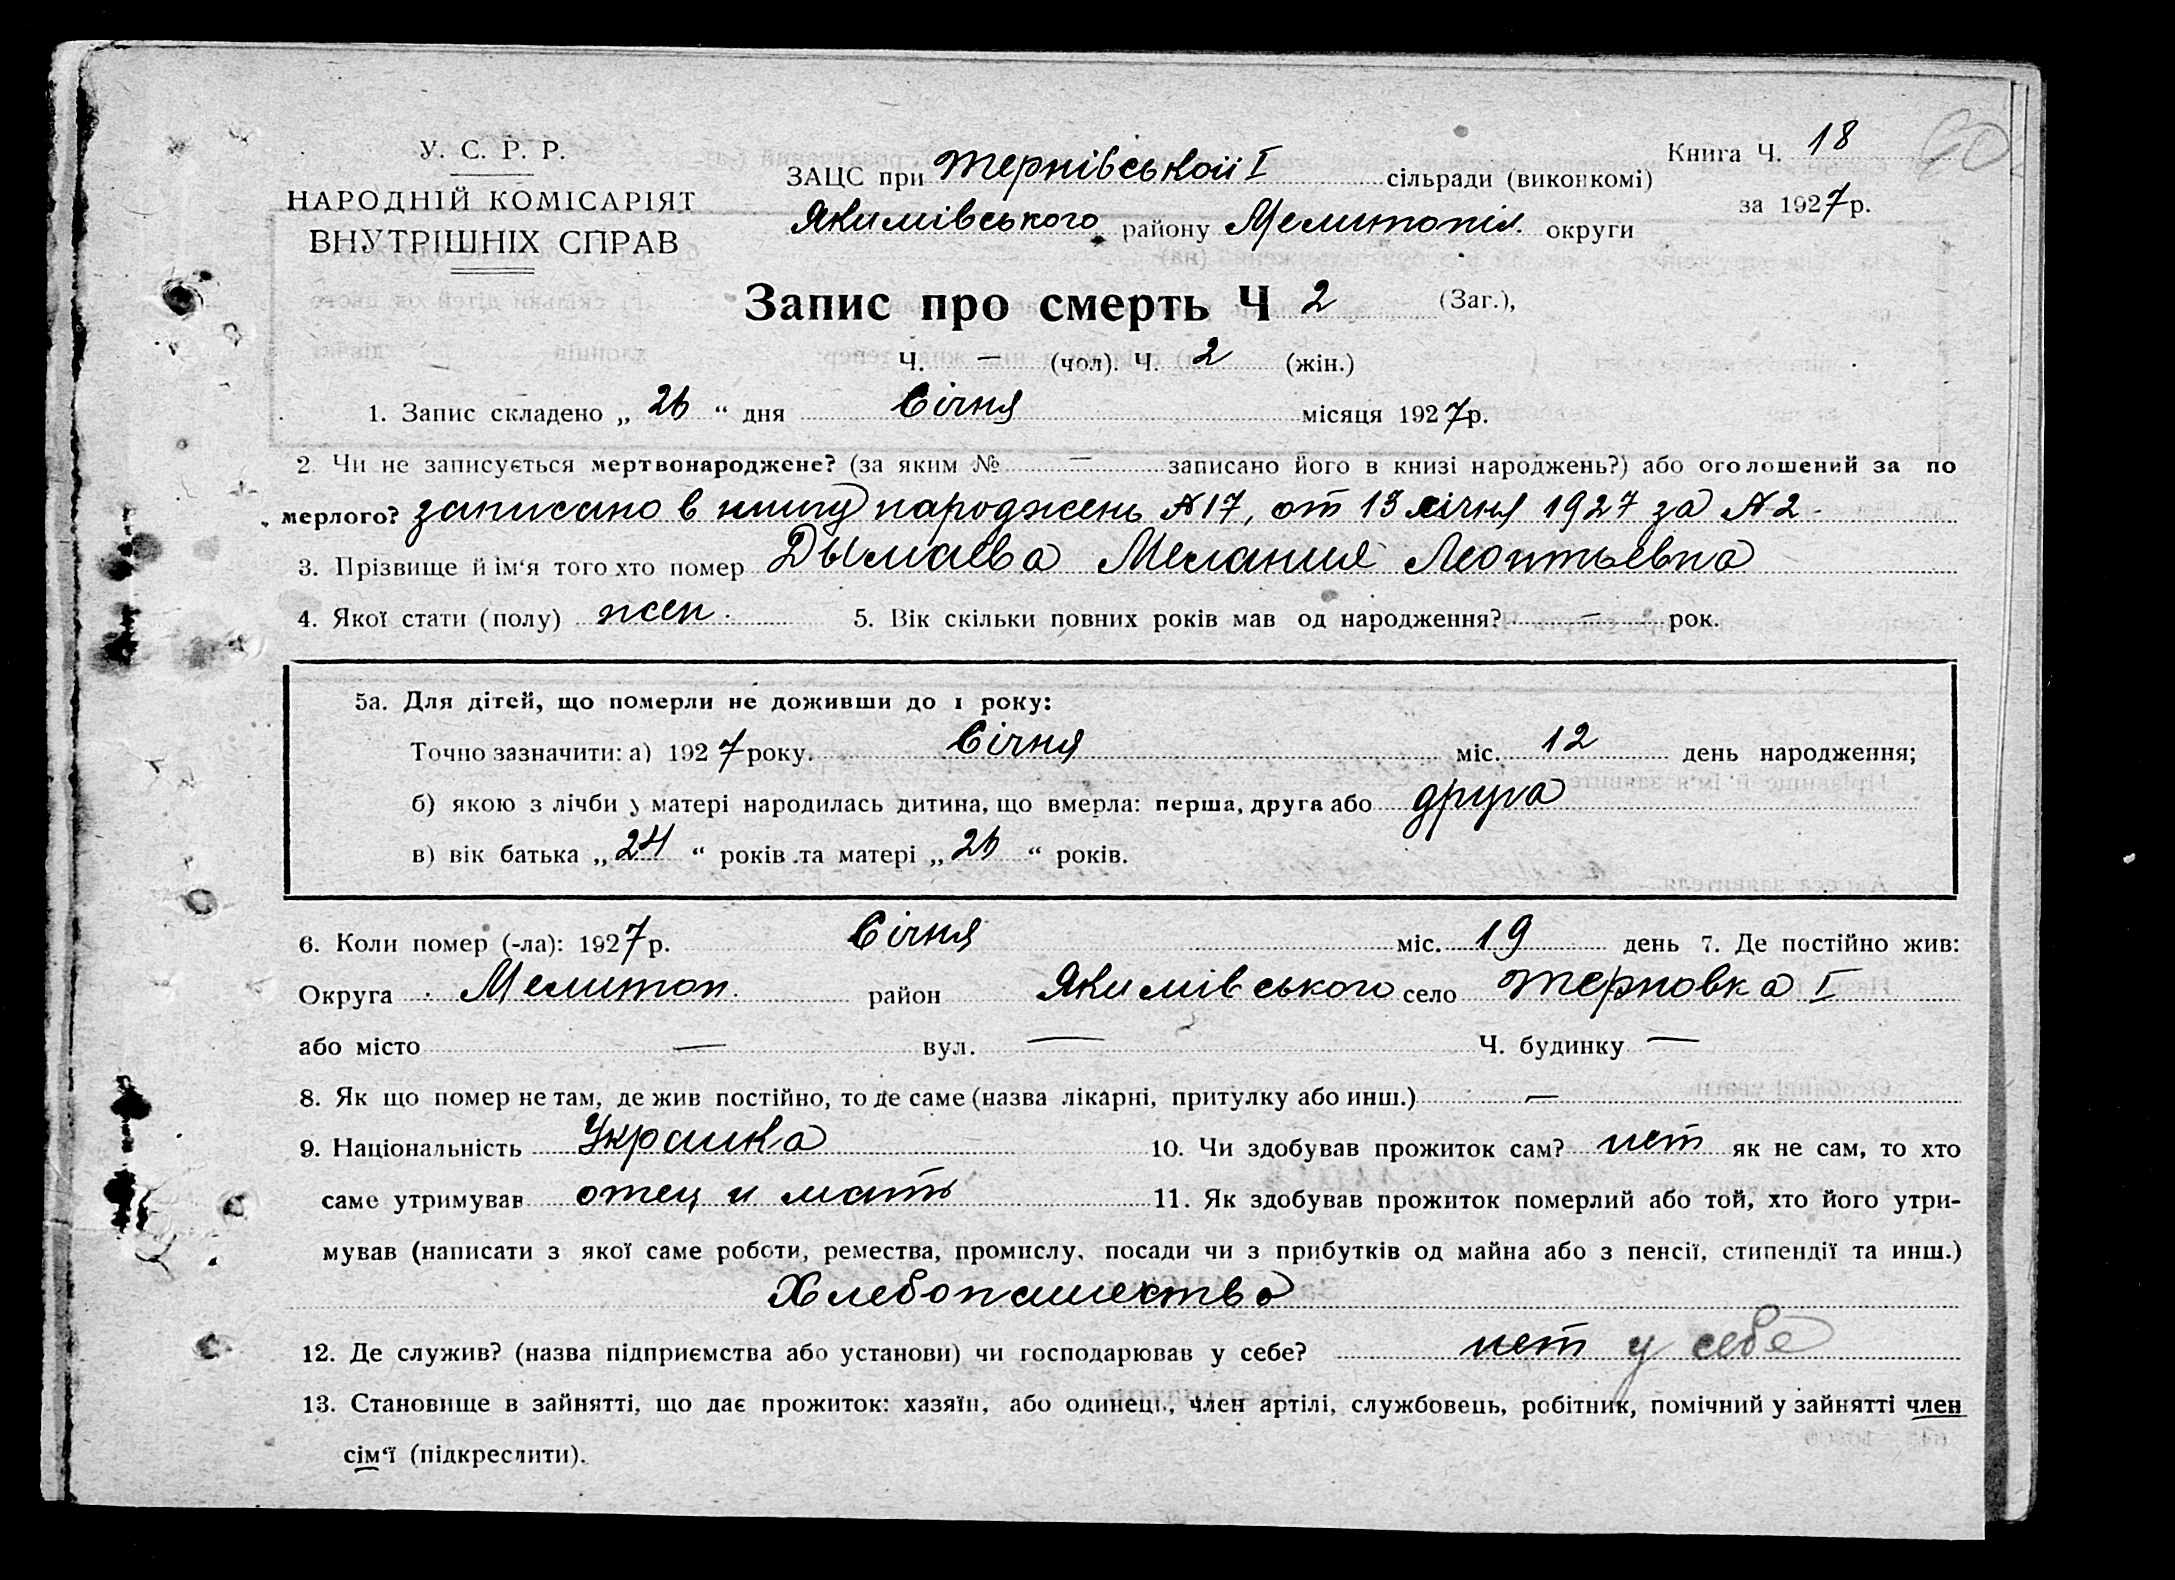 У. С. Р. Р.
НАРОДНІЙ КОМІСАРІЯТ
ВНУТРІШНІХ СПРАВ
ЗАЦС при Тернівської I сільради (виконкомі)
Якимівського району Мелитопіл. округи
Книга Ч. 18
за 1927 р.
60
Запис про смерть Ч 2 (Заг.),
Ч. — (чол). Ч. 2 (жін.)
1. Запис складено „ 26 “ дня Січня місяця 1927 р.
2 Чи не записується мертвонароджене? (за яким № — записано його в книзі народжень?) або оголошений за по
мерлого? записано в книгу народжень №17, от 13 січня 1927 за №2.
3. Прізвище й ім‘я того хто помер Дымаева Мелания Леонтьевна
4. Якої стати (полу) жен. 5. Вік скільки повних років мав од народження? — рок.
5а. Для дітей, що померли не доживши до 1 року:
Точно зазначити: а) 1927 року. Січня міс. 12 день народження;
б) якою з лічби у матері народилась дитина, що вмерла: перша, друга або друга
в) вік батька „ 24 “ років та матері „ 26 “ років.
6. Коли помер (-ла): 1927 р. Січня міс. 19 день 7. Де постійно жив:
Округа Мелитоп. район Якимівського село Терновка I
або місто — вул. — Ч. будинку —
8. Як що помер не там, де жив постійно, то де саме (назва лікарні, притулку або инш.) —
9. Національність Украинка 10. Чи здобував прожиток сам? нет як не сам, то хто
саме утримував отец и мать 11. Як здобував прожиток померлий або той, хто його утри-
мував (написати з якої саме роботи, ремества, промислу, посади чи з прибутків од майна або з пенсії, стипендії та инш.)
Хлебопашество
12. Де служив? (назва підприємства або установи) чи господарював у себе? нет у себе
13. Становище в зайнятті, що дає прожиток: хазяїн, або одинець, член артілі, службовець, робітник, помічний у зайнятті член
сім‘ї (підкреслити).